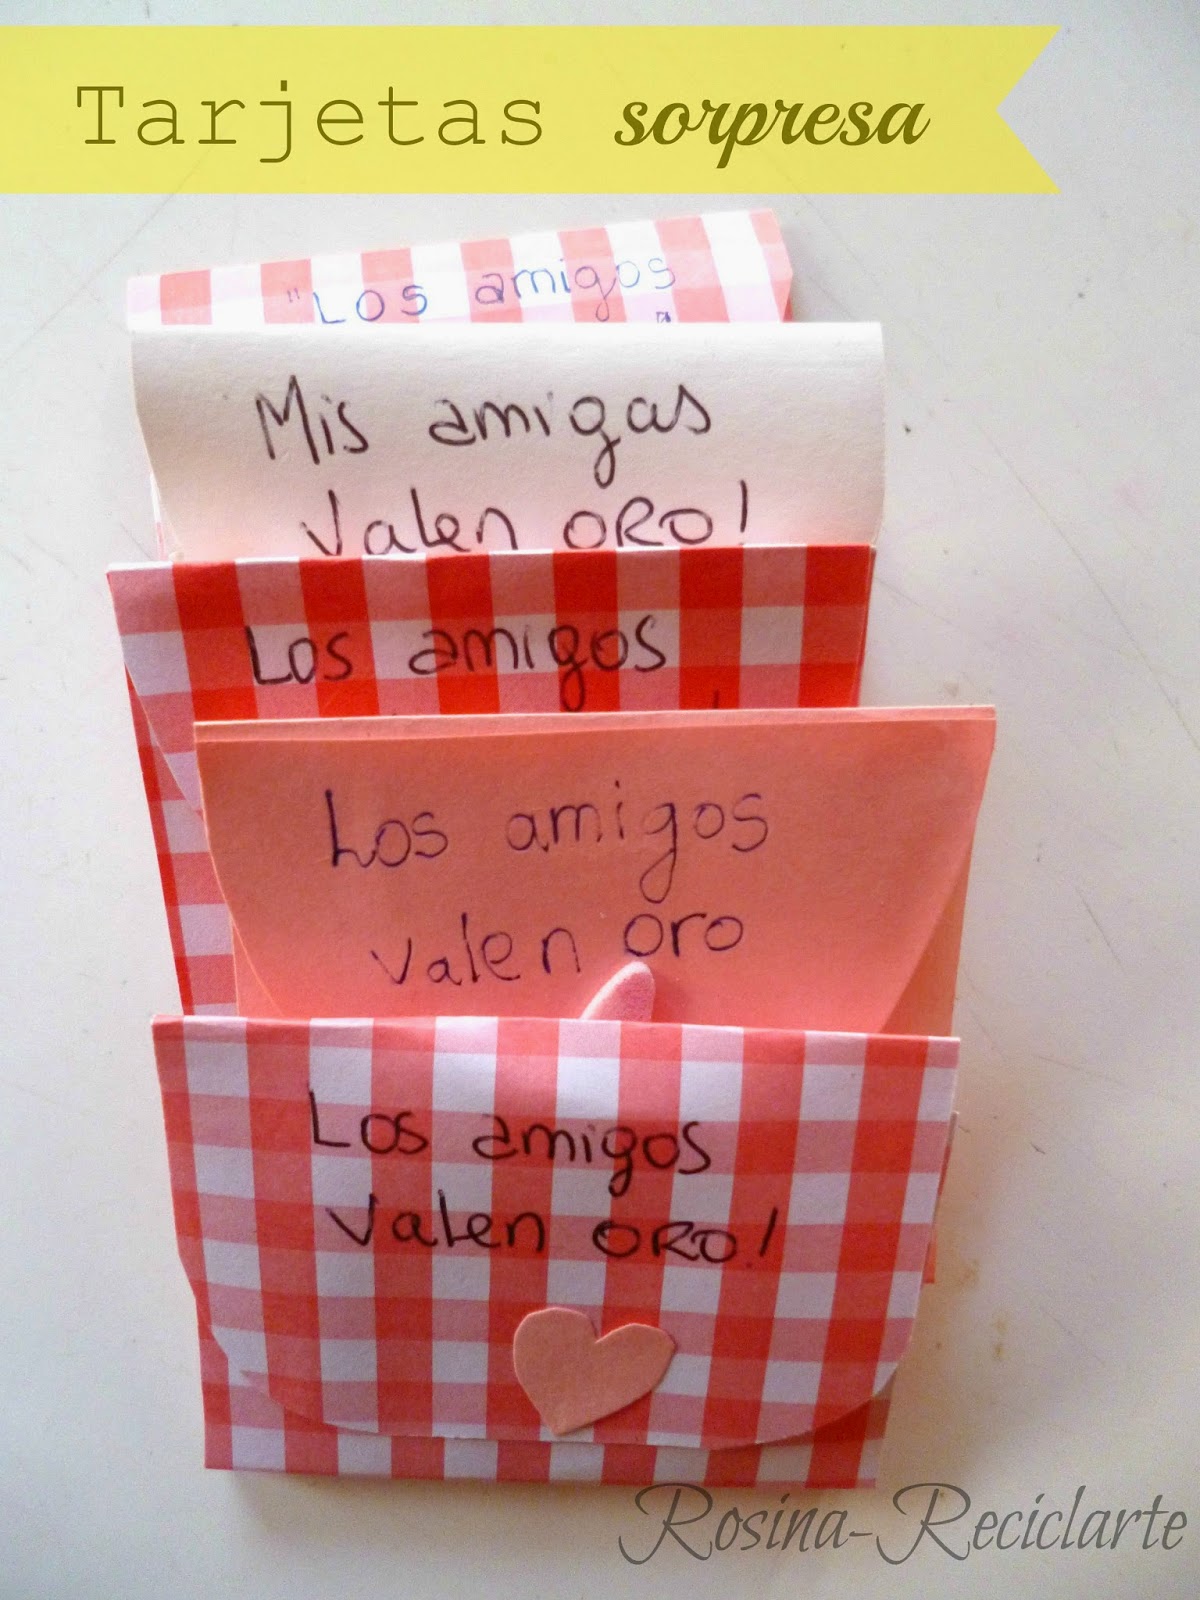 Tarjetas sorpresa
"Los amigos
Mis amigas
Valen ORO!
Los amigos
Los amigos
valen oro
Los amigos
Valen ORO!
Rosina-Reciclarte